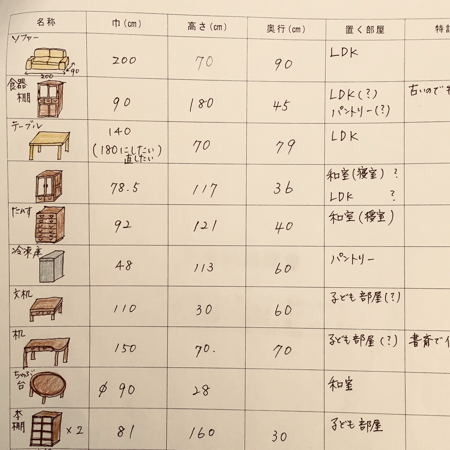 名称 巾(cm) 高さ(cm) 奥行(cm) 置く部屋
ソファー 200 70 90 LDK
200 90
食器棚 90 180 45 LDK(?) パントリー(?) 古いので
テーブル 140 70 79 LDK
(180にしたい)
直したい
78.5 117 36 和室(寝室)?
LDK ?
たんす 92 121 40 和室(寝室)
冷凍庫 48 113 60 パントリー
文机 110 30 60 子ども部屋(?)
机 150 70. 70 子ども部屋(?) 書斎で
ちゃぶ台 φ90 28 和室
本棚 ×2 81 160 30 子ども部屋